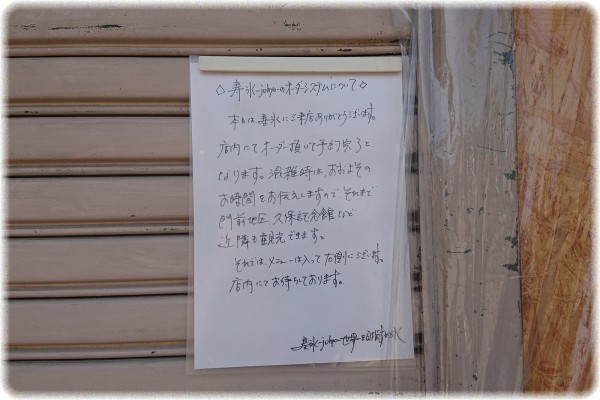 ◇寿氷-juhyo-のオーダーシステムについて◇
本日は寿氷にご来店ありがとうございます。
店内にてオーダー頂いて予約完了と
なります。混雑時は、おおよその
お時間をお伝えしますので それまで
門前地区、久保記念館など
近隣を観光できます。
それでは、メニューは入って右側にございます。
店内にてお待ちしております。
寿氷-juhyo- 世界一